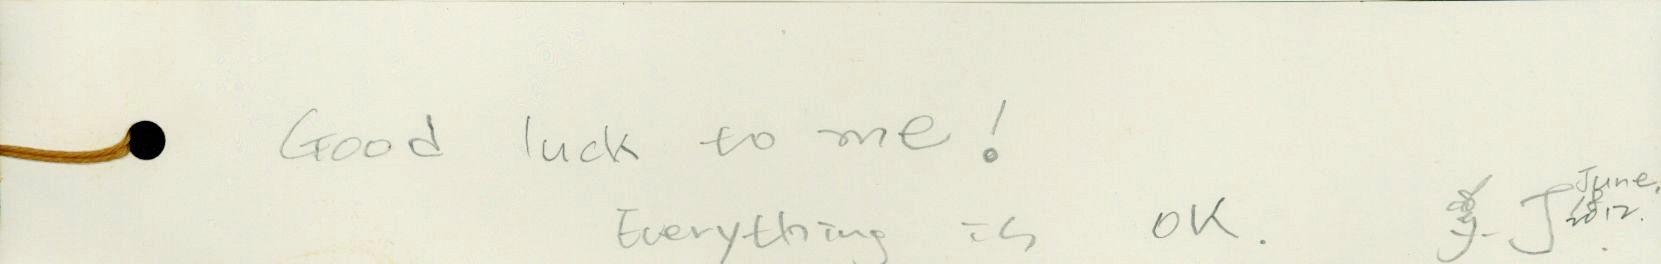 Good luck to me!
Everything is OK.
June,
2012.